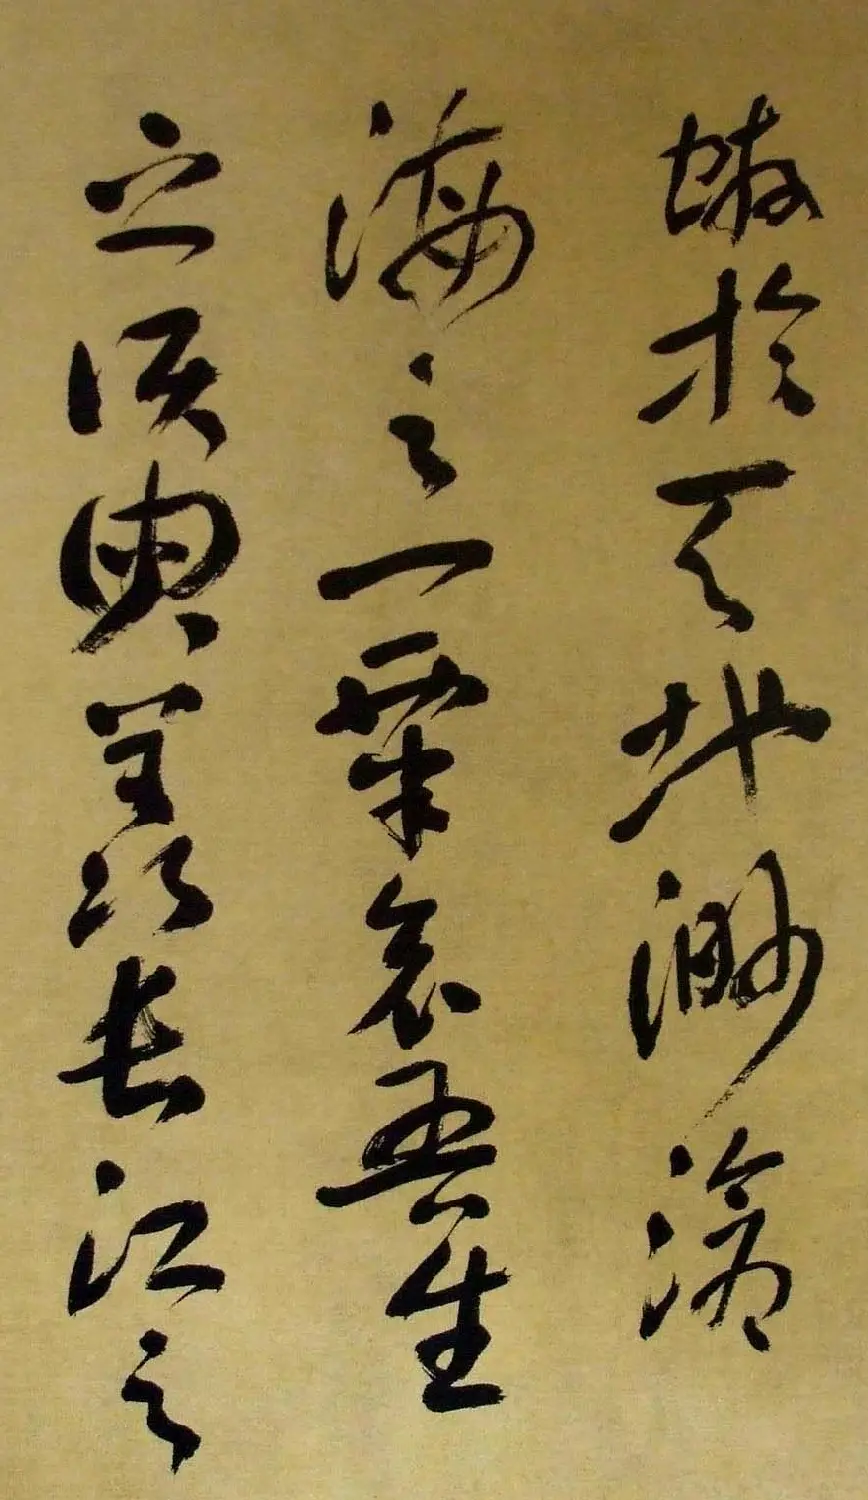 蝣於天地渺滄
海之一粟哀吾生
之須臾羨長江之